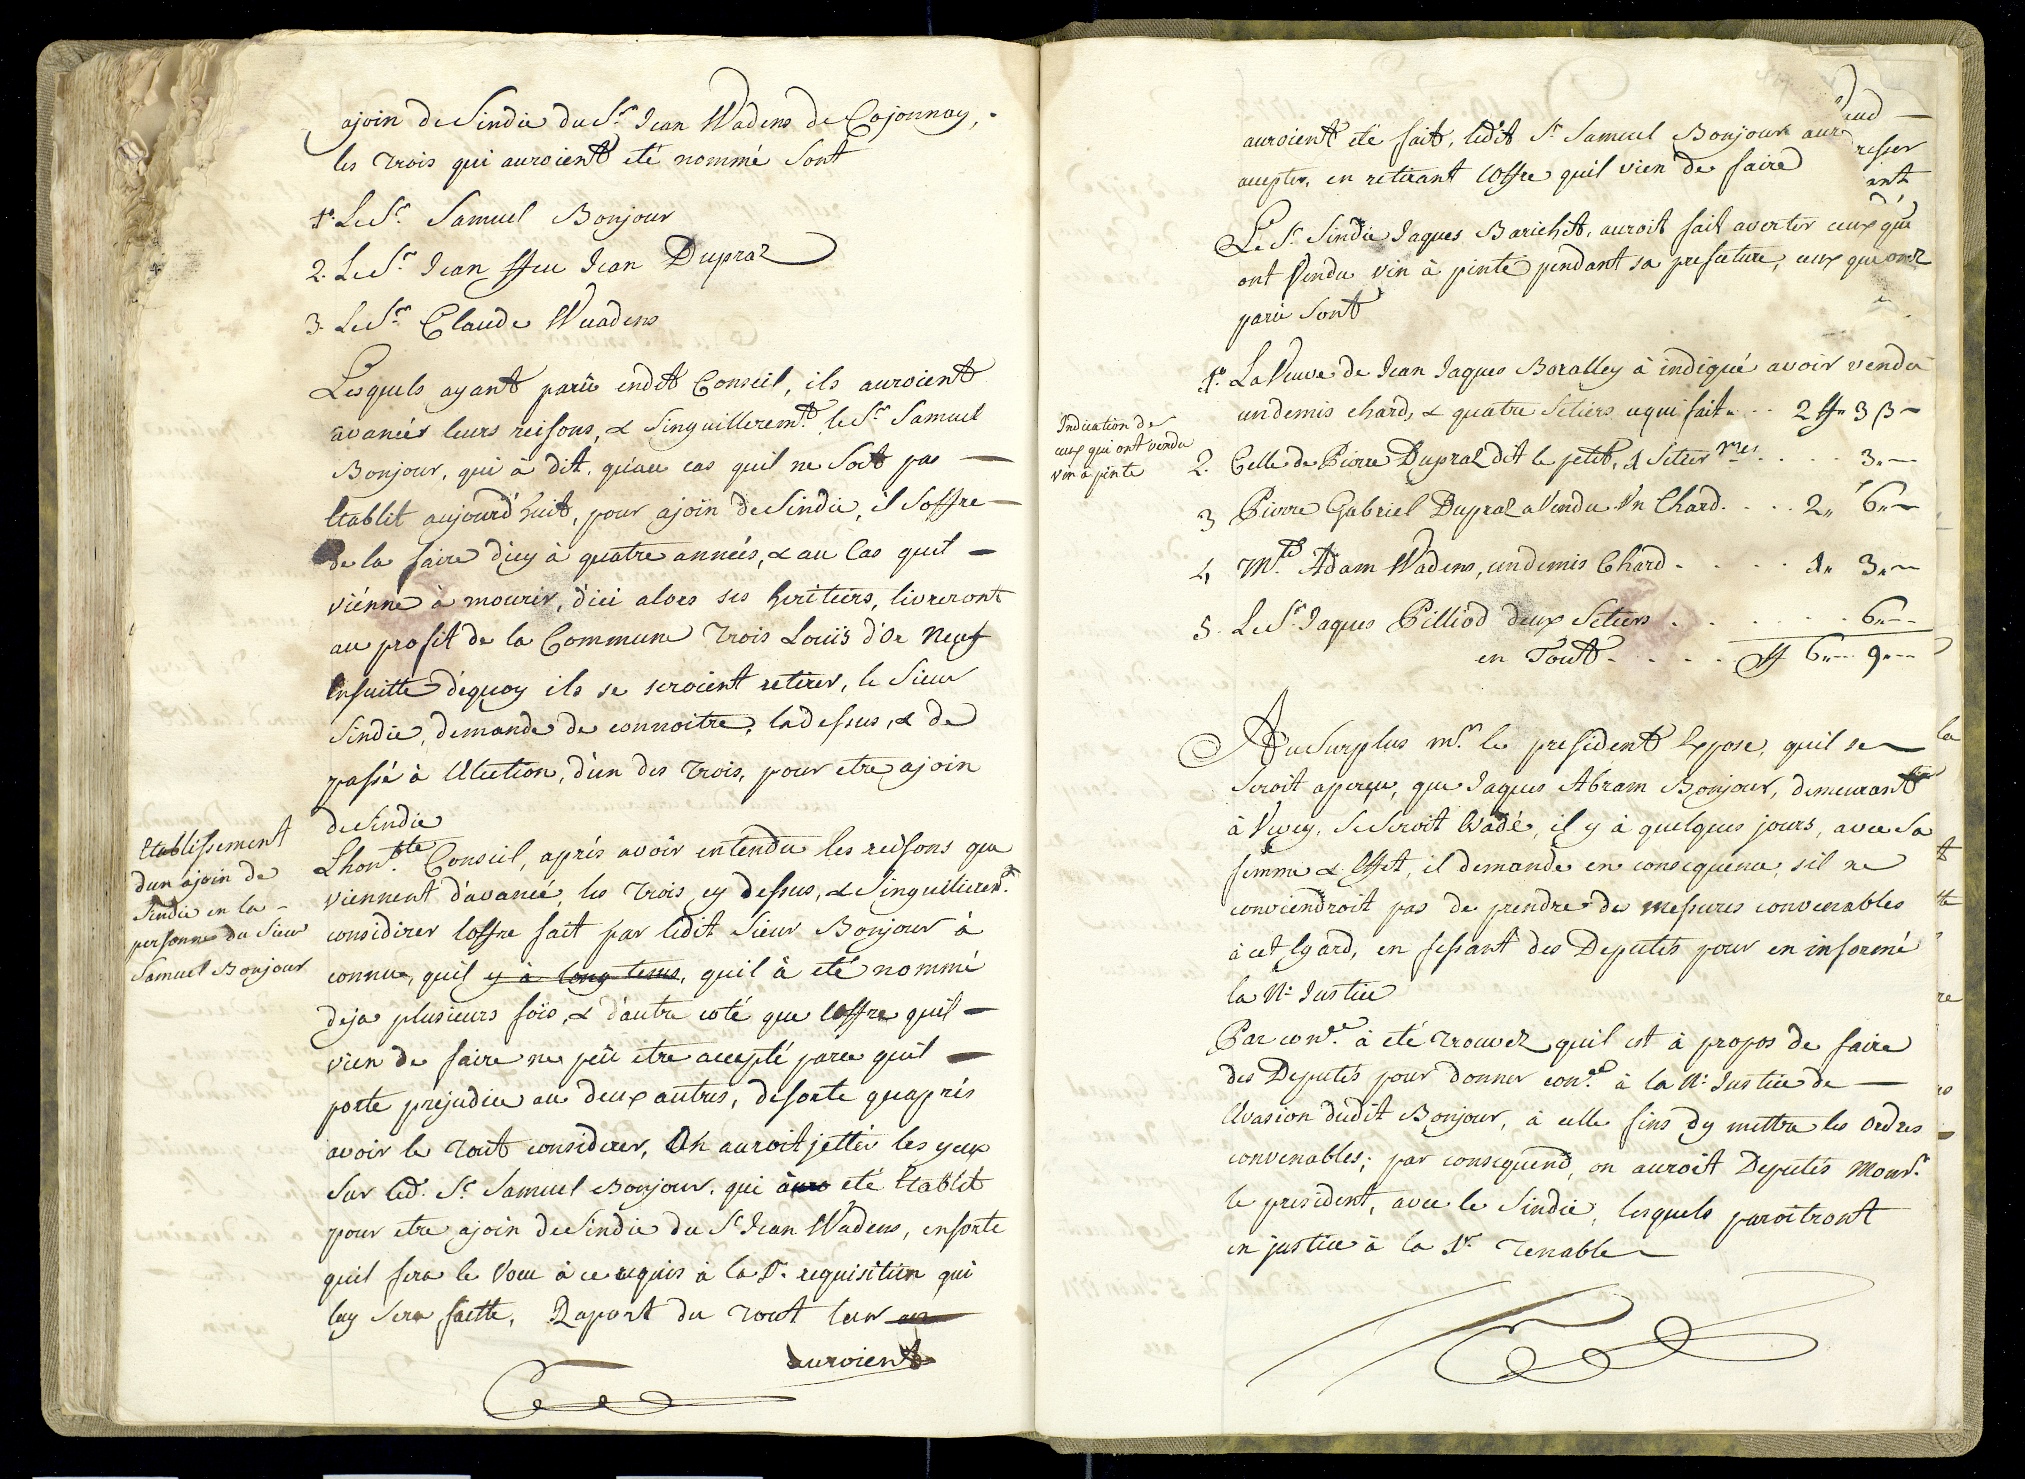 ajoin de Sindic du Sr. Jean Wadens de Cojonnay,
les trois qui auroient été nommé sont
1o. Le Sr. Samuel Bonjour
2. Le Sr. Jean ffeu Jean Dupraz
3. Le Sr. Claude Wuadens
Lesquels ayant parü endit Conseil, ils auroient
avancér leurs reisons, & Singuilleremt. le Sr. Samuel
Bonjour, qui à dit, qu'au cas quil ne Soit pas
Etablit aujourd'huit, pour ajoin de Sindic, il s'offre
de la faire d'icy à quatre années, & au Cas quil
viénne à mourir, d'ici alors ses heritiers, livreront
au profit de la Commune trois Louïs d'Or Neuf
Ensuitte déquoy ils se seroient retirer, le Sieur
Sindic, demande de connoitre, la dessus, & de
passé à l'Election, d'un des trois, pour etre ajoin
de Sindic
Etablissement
d'un ajoin de
Sindic en la
personne du Sieur
Samuel Bonjour
Lhonble. Conseil, aprés avoir entendu les reisons que
viennent d'avancé, les trois cy dessus, & Singuilierent.
considirer l'offre fait par ledit Sieur Bonjour à
connue, quil y à long tems, quil à eté nommé
deja plusieurs fois, & d'autre coté que l'offre quil
vien de faire ne peü etre accepté parce quil
porte prejudice au deux autres, desorte quaprés
avoir le tout considerer, On auroit jettér les yeux
Sur led. Sr. Samuel Bonjour, qui à eté Etablit
pour etre ajoin de Sindic du Sr. Jean Wadens, ensorte
quil fera le Vœu à ce requis à la 1re. requisition qui
luy sera faitte, Raport du tout leur
auroient
auroient eté fait, ledit Sr. Samuel Bonjour
accepter, en retirant l'offre quil vien de faire
Le Sr. Sindic Jaques Baricht, auroit fait averter ceux qui
ont Vendu vin à pinte pendant sa prefecture, ceux qui onz
parü Sont
1o. La Veuve de Jean Jaques Boralley à indiqué avoir vendu
un demis chard, & quatre Setiers ce qui fait . . 2 ff 3 ß
Indication de
ceux qui ont vendu
vin à pinte
2. Celle de Pierre Dupraz dit le petit, 1 Setier . . . . 3.
3 Pierre Gabriel Dupraz a Vendu Un Chard . . . . 2,, 6.
4, Mre. Adam Wadens, un demis Chard . . . . 1,, 3.
5. Le Sr. Jaques Pilliod deux Setiers . . . . . 6.
en Tout . . . . ff 6. 9.
Au Surplus Mr. le president Expose, quil se
Seroit aperçu, que Jaques Abram Bonjour, demeurant
à Vivey, Se Seroit Evadé, il y à quelques jours, avec Sa
femme & Effet, il demande en consequence, s'il ne
conviendroit pas de prendre des messures convenables
à cet Egard, en fessant des Deputés pour en informé
la N: Justice
Par conce. à eté trouvez quil est à propos de faire
des Deputés pour donner conce. à la N: Justice de
l'Evasion dudit Bonjour, à celle fins dy mettre les Ordres
convenables; par consequend, on auroit Deputés Monsr.
le president, avec le Sindic, lesquels paroitront
en justice à la 1re. tenable